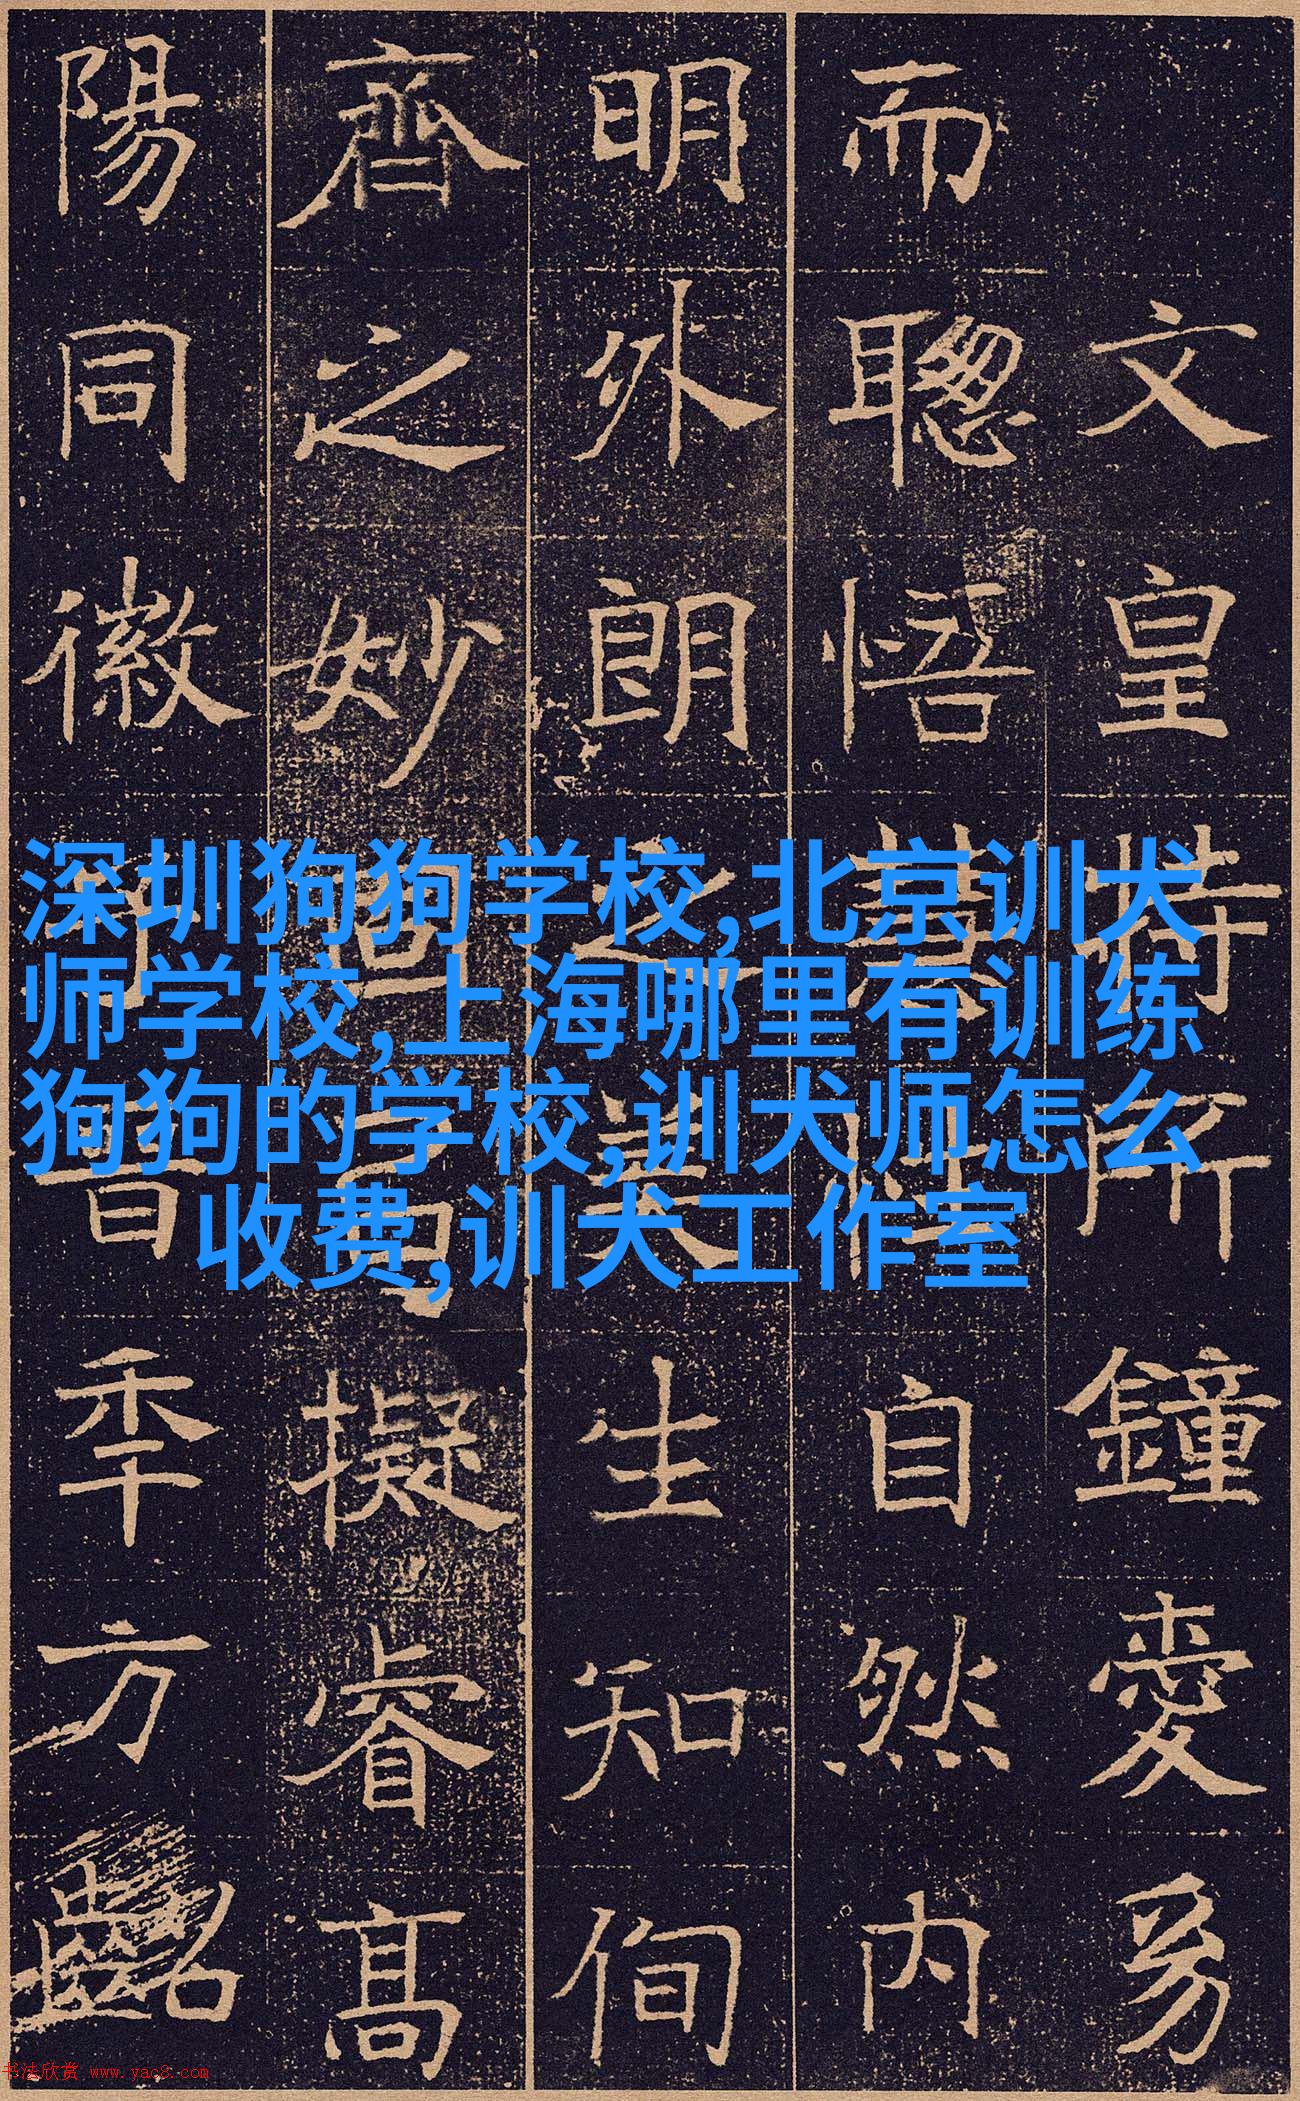 文皇特所鐘愛焉
而聰悟自然內
明外朗之美生知徇
齊之妙擬睿高
陽同徽晉季方齠
深圳狗狗学校,北京训犬
师学校,上海哪里有训练
狗狗的学校,训犬师怎么
收费,训犬工作室
书法欣赏 www.yac8.com